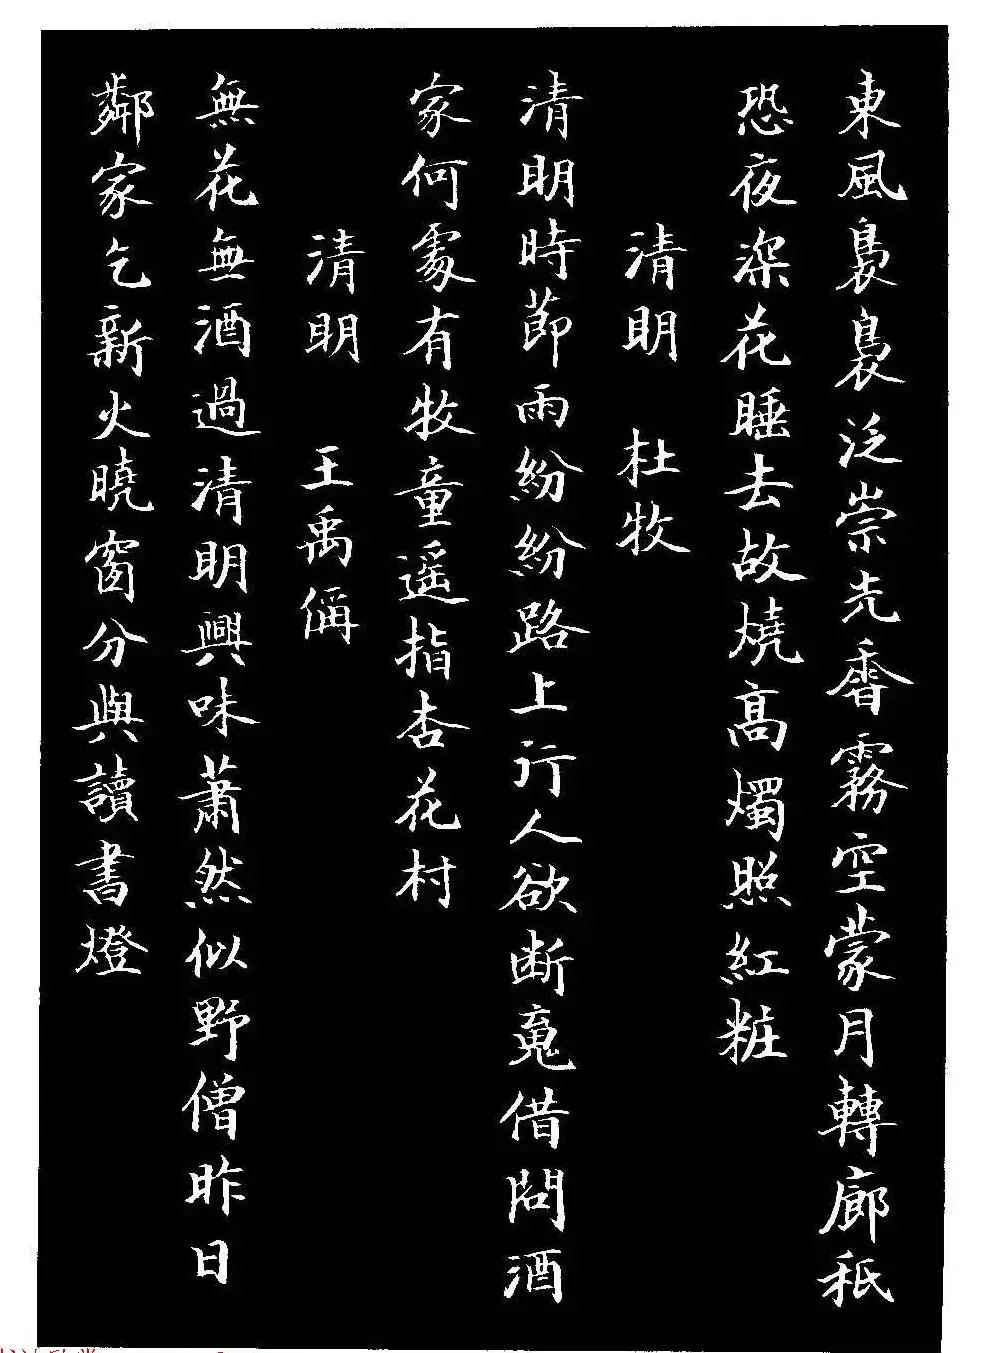 東風裊裊泛崇光香霧空蒙月轉廊秖
恐夜深花睡去故燒高燭照紅粧
清明 杜牧
清明時節雨紛紛路上行人欲断魂借問酒
家何處有牧童遥指杏花村
清明 王禹偁
無花無酒過清明興味蕭然似野僧昨日
鄰家乞新火曉窗分與讀書燈